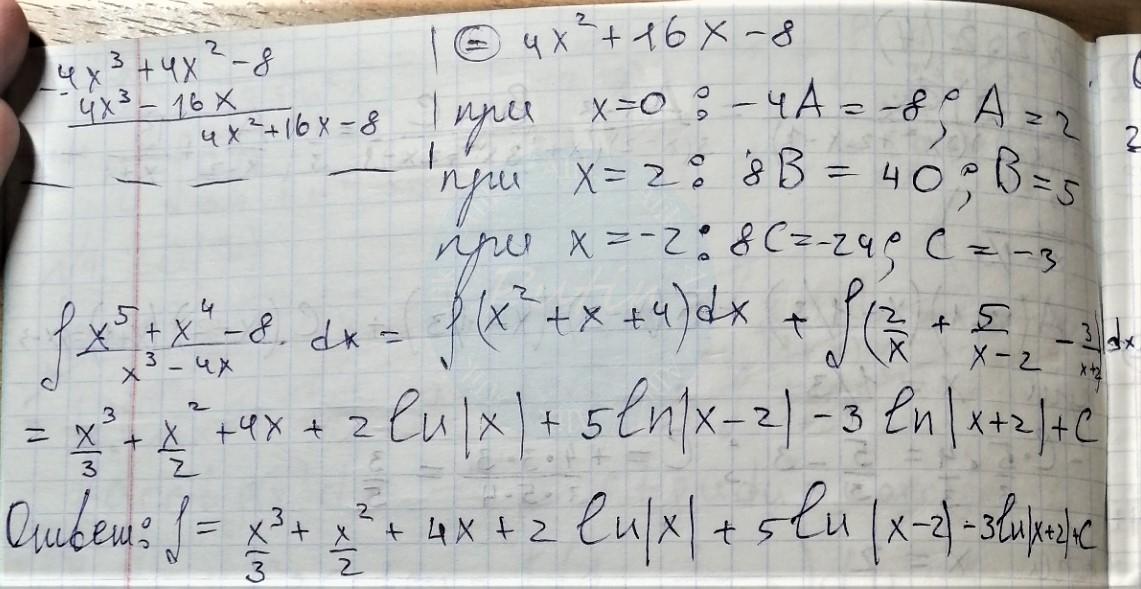 4x³ + 4x² - 8
4x³ - 16x
4x² + 16x - 8
= 4x² + 16x - 8
при x=0: -4A = -8; A = 2
при x = 2: 8B = 40; B = 5
при x = -2: 8C = -24; C = -3
∫ (x⁵ + x⁴ - 8)/(x³ - 4x) dx = ∫(x² + x + 4)dx + ∫(2/x + 5/(x-2) - 3/(x+2))dx
= x³/3 + x²/2 + 4x + 2 ln|x| + 5 ln|x-2| - 3 ln|x+2| + C
Ответ: ∫ = x³/3 + x²/2 + 4x + 2 ln|x| + 5 ln|x-2| - 3 ln|x+2| + C